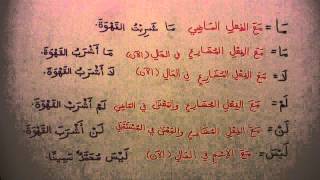 مَا = مَعَ الفِعْلِ المَاضِي مَا شَرِبْتُ القَهْوَةَ.
مَا = مَعَ الفِعْلِ المُضَارِعِ فِي الحَالِ (الآنَ) مَا أَشْرَبُ القَهْوَةَ.
لَا = مَعَ الفِعْلِ المُضَارِعِ فِي الحَالِ (الآنَ) لَا أَشْرَبُ القَهْوَةَ.
لَمْ = مَعَ الفِعْلِ المُضَارِعِ وَالمَعْنَى فِي المَاضِي لَمْ أَشْرَبِ القَهْوَةَ.
لَنْ = مَعَ الفِعْلِ المُضَارِعِ وَالمَعْنَى فِي المُسْتَقْبَلِ لَنْ أَشْرَبَ القَهْوَةَ.
لَيْسَ = مَعَ الاِسْمِ فِي الحَالِ (الآنَ) لَيْسَ مُحَمَّدٌ سَمِينًا.